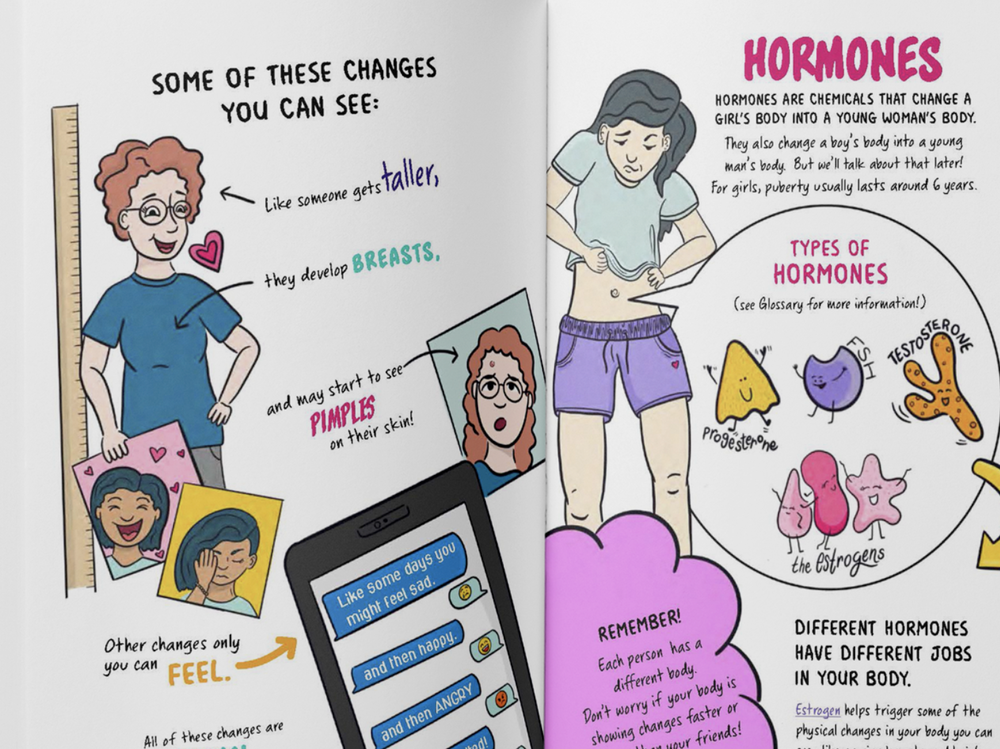 SOME OF THESE CHANGES
YOU CAN SEE:
Like someone gets taller,
they develop BREASTS,
and may start to see
PIMPLES
on their skin!
Like some days you
might feel sad.
and then happy.
and then ANGRY
Other changes only
you can FEEL.
All of these changes are
HORMONES
HORMONES ARE CHEMICALS THAT CHANGE A
GIRL'S BODY INTO A YOUNG WOMAN'S BODY.
They also change a boy's body into a young
man's body. But we'll talk about that later!
For girls, puberty usually lasts around 6 years.
TYPES OF
HORMONES
(see Glossary for more information!)
Progesterone
FSH
TESTOSTERONE
the Estrogens
REMEMBER!
Each person has a
different body.
Don't worry if your body is
showing changes faster or
your friends!
DIFFERENT HORMONES
HAVE DIFFERENT JOBS
IN YOUR BODY.
Estrogen helps trigger some of the
physical changes in your body you can